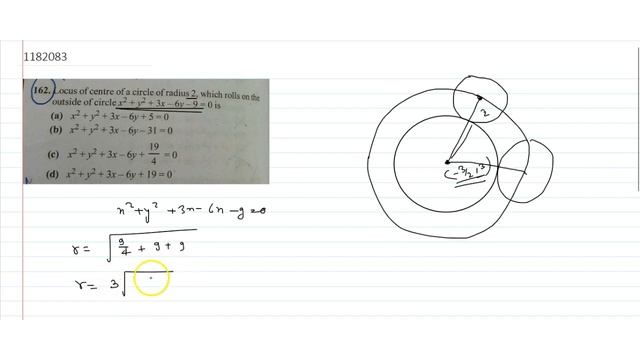 1182083
162. Locus of centre of a circle of radius 2, which rolls on the
outside of circle x² + y² + 3x – 6y – 9 = 0 is
(a) x² + y² + 3x – 6y + 5 = 0
(b) x² + y² + 3x – 6y – 31 = 0
(c) x² + y² + 3x – 6y + 19/4 = 0
(d) x² + y² + 3x – 6y + 19 = 0
2
(-3/2, 3)
x² + y² + 3x - 6x - 9 = 0
r = √(9/4 + 9 + 9)
r = 3√